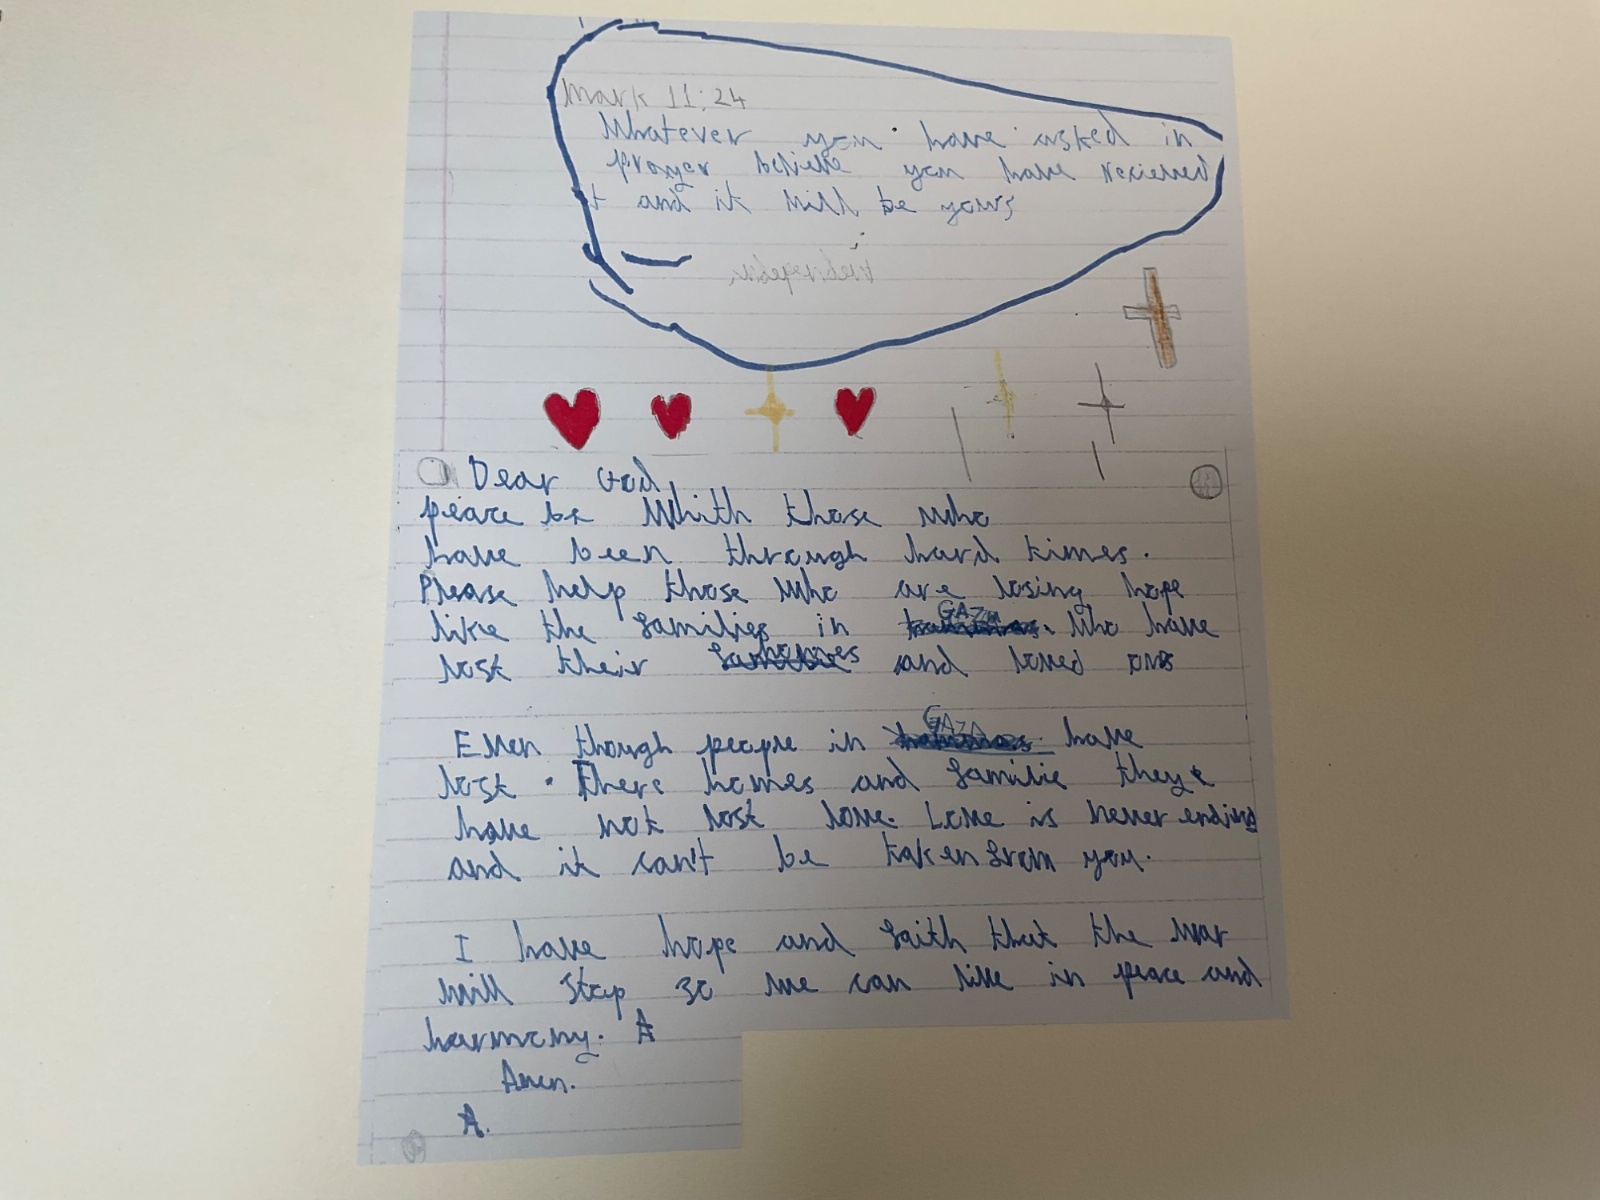 Mark 11:24
Whatever you have asked in
prayer believe you have recieved
it and it will be yours
Dear God
peace be Whith those who
have been through hard times.
Please help those who are losing hope
like the families in GAZA. Who have
lost their homes and loved ons
Even though people in GAZA have
lost. There homes and familie they
have not lost love. Love is never ending
and it can't be taken from you.
I have hope and faith that the war
will stop so we can live in peace and
harmony. A
Amen.
A.